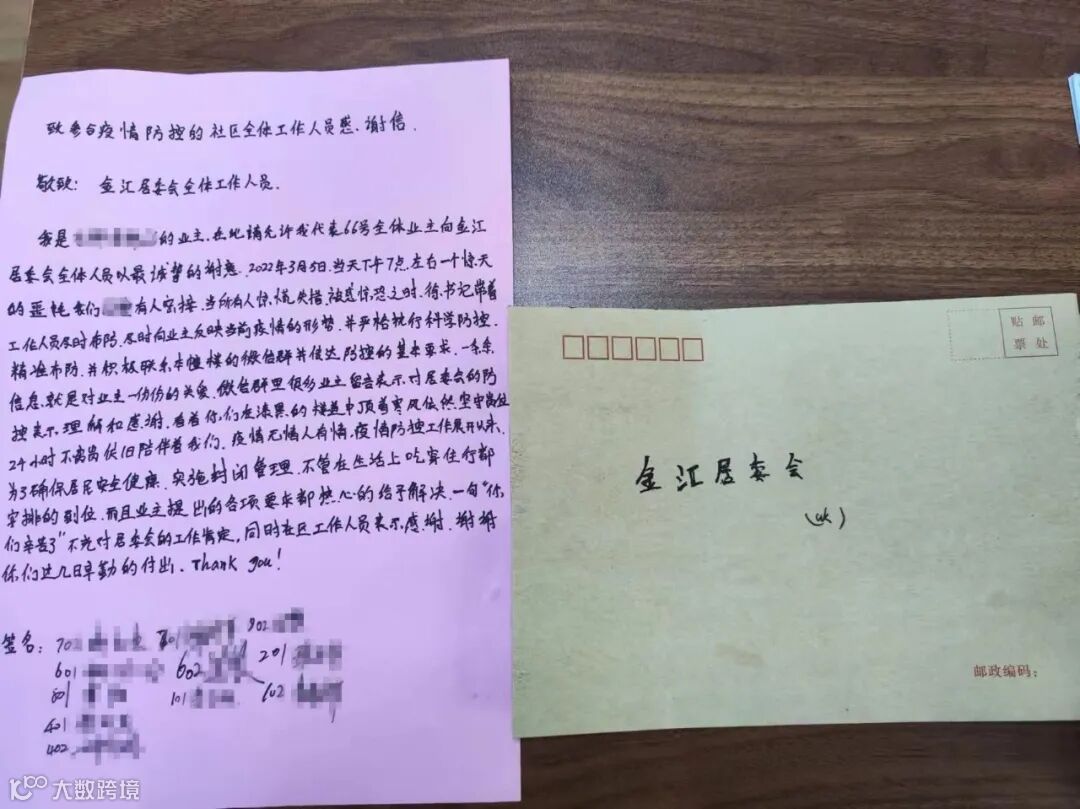 致参与疫情防控的社区全体工作人员感谢信.
敬致: 金汇居委会全体工作人员.
我是的业主.在此请允许我代表66号全体业主向金汇
居委会全体人员以最诚挚的谢意. 2022年3月5日.当天下午7点.左右一个惊天
的噩耗我们有人密接.当所有人惊慌失措.被感惊恐之时.徐书记带着
工作人员及时布防.及时向业主反映当前疫情的形势.并严格执行科学防控.
精准布防.并积极联系本幢楼的微信群并传达防控的基本要求.一条条
信息.就是对业主一份份的关爱.微信群里很多业主留言表示.对居委会的防
控表示.理解和感谢.看着你们在漆黑的楼道中顶着寒风依然坚守岗位
24小时不离岗依旧陪伴着我们.疫情无情人有情.疫情防控工作展开以来.
为了确保居民安全健康.实施封闭管理.不管在生活上吃穿住行都
安排的到位.而且业主提出的各项要求都热心的给予解决.一句"你
们辛苦了"不光对居委会的工作肯定,同时社区工作人员表示.感谢.谢谢
你们这几日辛勤的付出. Thank you!
签名: 702 902
601 602 201
501 101
401
402
贴邮
票处
金汇居委会
(收)
邮政编码:
大数跨境